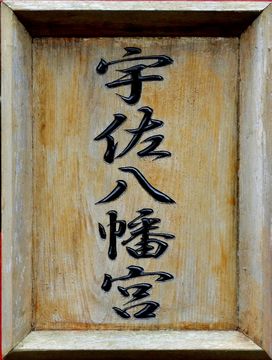 宇佐八幡宮